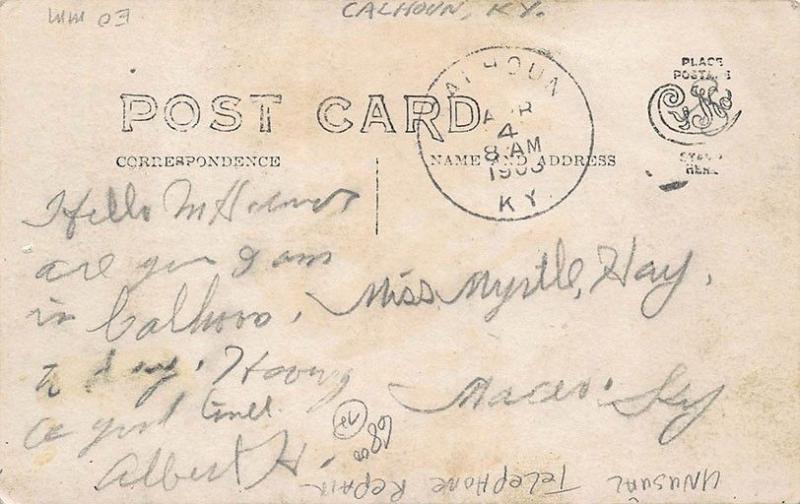 CALHOUN, KY.
POST CARD
CALHOUN
APR
4
8 AM
KY.
PLACE
POSTAGE
STAMP
HERE
CORRESPONDENCE
NAME AND ADDRESS
Hello M How
are you I am
in Calhoon,
to day. Having
a good time.
Albert H.
Miss, Myrtle, Hay,
Maceo. Ky
UNUSUAL TELEPHONE REPAIR